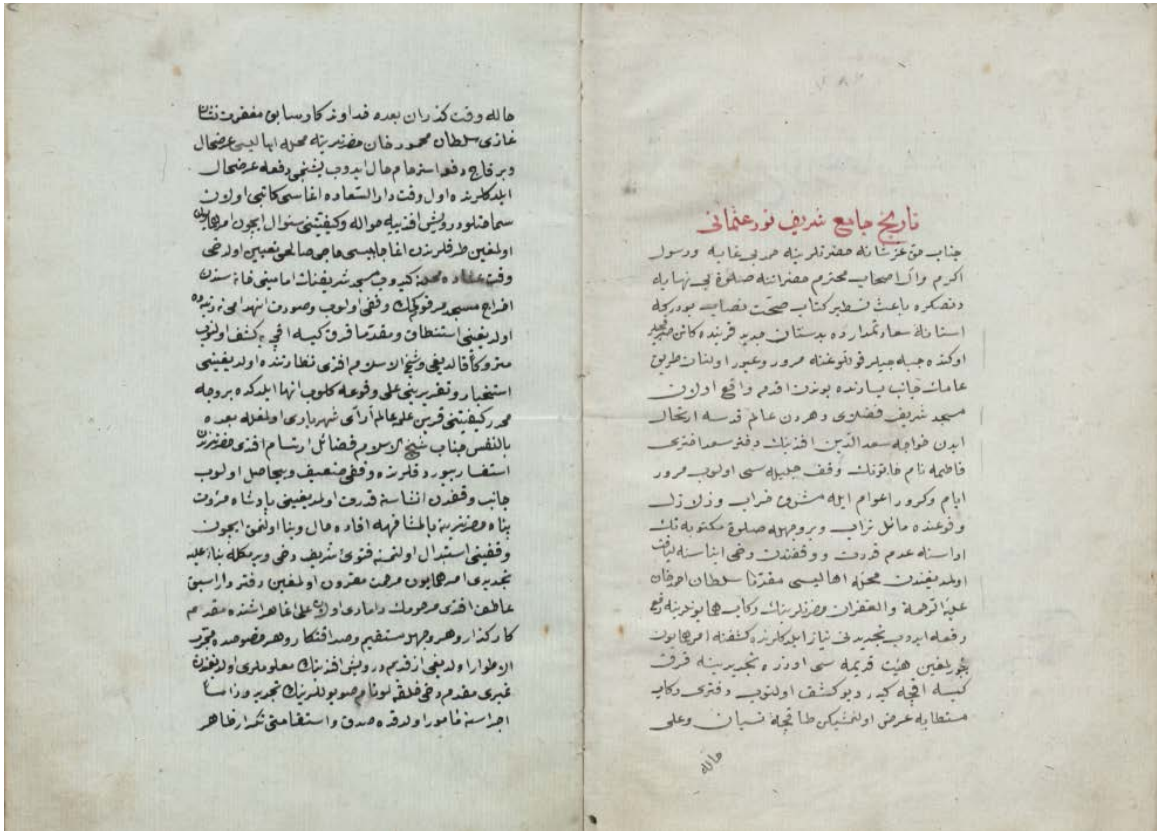 تاریخ جامع شریف نور عثمانی
جناب حق عز شانه حضرتلرینه حمد بی غایه و رسول
اکرم وآل اصحاب محترم حضراتنه صلوة بی نهایه
دنصکره باعث تسطیر کتاب صحت نصاب بودرکه
استانۀ سعادتمده بدستان جدید قربنده کائن
اوکنده جبه جیلر قوللوغنه مرور وعبور اولنان طریق
عامك جانب یسارنده بوندن اقدم واقع اولان
مسجد شریف فضلای دهردن عالم قدسه ارتحال
ایدن خواجه سعد الدین افندینك دختر سعد اختری
فاطمه نام خاتونك وقف جلیله سی اولوب مرور
ایام وکرور اعوام ایله مشرف خراب وزلازل
وقوعنده مائل تراب و بر وجهله صلوة مکتوبه نك
اداسنه عدم قدرت و وقفندن دخی ابناسنه
اولمدیغندن محله اهالیسی مقدما سلطان احمد خان
علیه الرحمة والغفران حضرتلرینك رکاب همایونلرینه رفع
رقعه ایدوب تجدیدنی نیاز ایلدکلرنده کشفنه امر همایون
بیورلمغین هیئت قدیمه سی اوزره تجدیدینه قرق
کیسه اقچه کیدر دیو کشف اولنوب دفتری رکاب
مستطابه عرض اولنمشیکن طاقچۀ نسیان وعلی
حاله
حاله وقت گذران بعده خداوندکار سابق مغفرت نشان
غازی سلطان محمود خان حضرتلرینه محله اهالیسی عرضحال
و بر قاچ دفعه استرحام حال ایدوب بشنجی دفعه عرضحال
ایلدکلرنده اول وقت دار السعاده اغاسی کاتبی اولان
سماحتلو درویش افندیه حواله وکیفیتنی سؤال ایچون امر همایون
اولمغین طرفلرندن اغا چاپیسی حاجی صالح تعیین اولنوب
وقت محله کیدوب مسجد شریفك امامنی خانه سندن
اخراج مسجد مرقومك وقفی اولوب وصورت انهدامی نه
اولدیغنی استنطاق ومقدما قرق کیسه اقچه کشف اولنوب
متروکا قالدیغی وشیخ الاسلام افندی نظارتنده اولدیغنی
استخبار وتقریرینی علی وقوعه کلوب انها ایلدکده بر وجه
محرر کیفیتنی قرین علم عالم آرای شهریاری اولمغله بعده
بالنفس جناب شیخ الاسلام فضائل ارتسام افندی حضرتلرندن
استفسار بیوردقلرنده وقفی ضعیف وبیحاصل اولوب
جانب وقفدن انشاسنه قدرت اولمدیغینی پادشاه مروت
پناه حضرتلرینه بالمشافهه افادۀ حال وبنا اولنمق ایچون
وقفیتی استبدال اولنمسنه فتوای شریف دخی ویرمکله بناء علیه
تجدیدی امر همایون مرحمت مقرون اولمغین دفتردار اسبق
عاطف افندی مرحومك دامادی اولان علی اغا هر ایشنده مقدم
کارگذار و هر وجهله مستقیم وصداقتکار وهر خصوصده مجرب
الاطوار اولدیغی از قدیم درویش افندینك معلوملری اولدیغندن
غیری مقدم دخی خلقه لو نام صو یوللرینك تجدید وزلا
اجراسنه مأمور اولدقده صدق واستقامتی تکرار ظاهر